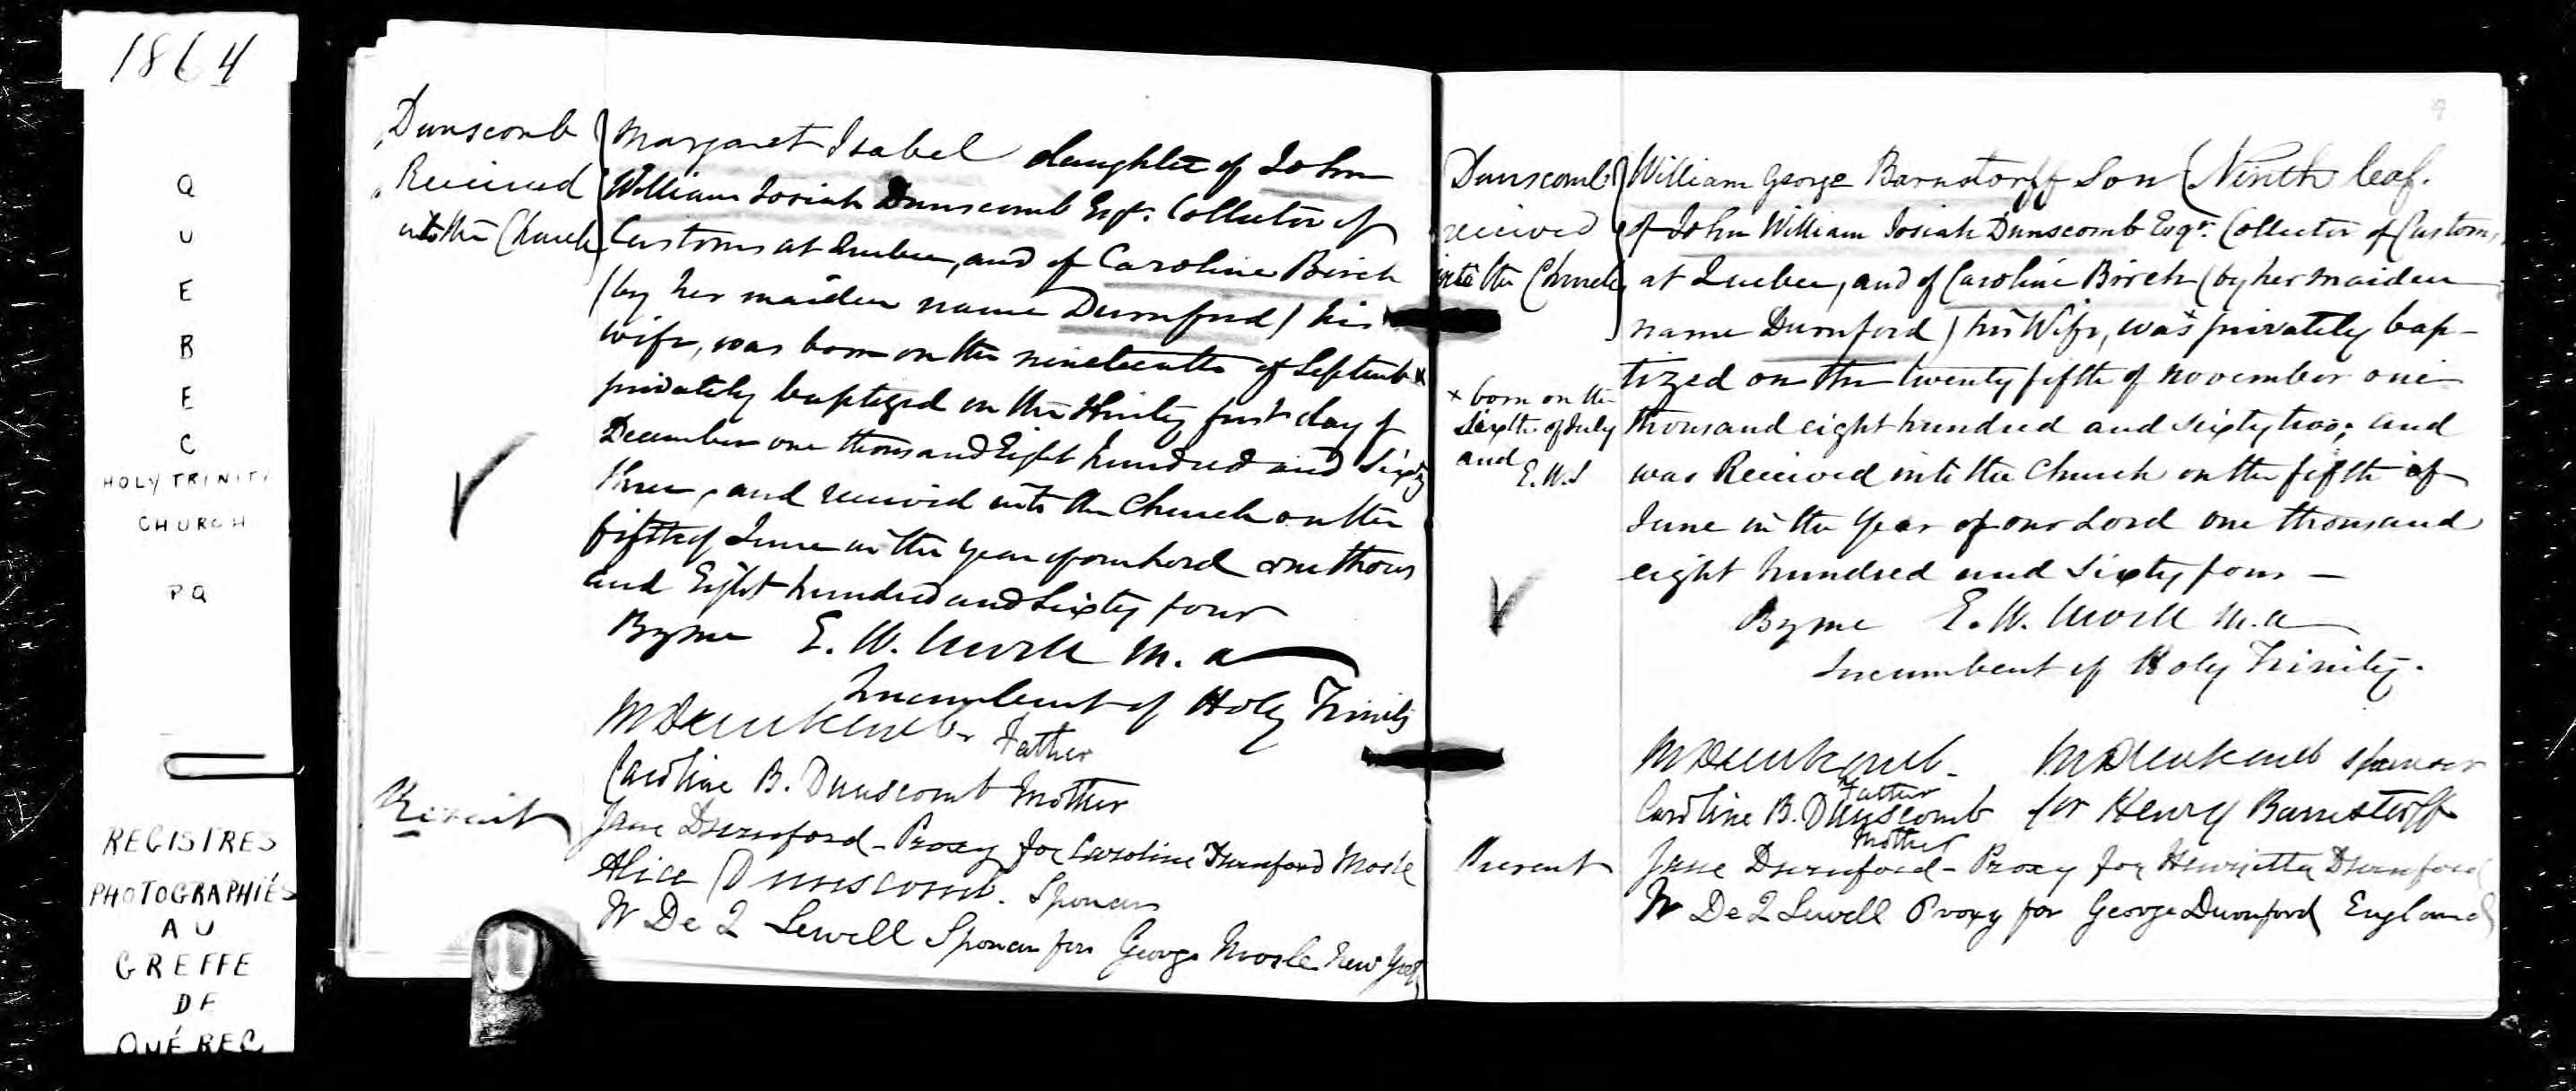 1864
QUEBEC
HOLY TRINITY
CHURCH
PQ
REGISTRES
PHOTOGRAPHIÉS
AU
GREFFE
DE
QUÉBEC
Dunscomb
Received
into the Church
Margaret Isabel daughter of John
William Josiah Dunscomb Esqr. Collector of
Customs at Quebec, and of Caroline Birch
(by her maiden name Durnford) his
wife, was born on the nineteenth of Septemb
privately baptized on the thirty first day of
December one thousand Eight hundred and Sixty
three, and received into the Church on the
fifth of June in the year of our Lord one thous
and Eight hundred and Sixty four
By me E. W. Sewell M. A
Incumbent of Holy Trinity
Father
Caroline B. Dunscomb Mother
Present
Jane Durnford - Proxy for Caroline Durnford Mosle
Alice Dunscomb. Sponsor
W De 2 Sewell Sponsor for George Mosle New York
9
Dunscomb
received
into the Church
William George Barnstorff Son (Ninth leaf.
of John William Josiah Dunscomb Esqr. Collector of Customs
at Quebec, and of Caroline Birch (by her maiden
name Durnford) his Wife, was x privately bap-
tized on the twenty fifth of November one
thousand eight hundred and sixty two; and
was Received into the Church on the fifth of
June in the Year of our Lord one thousand
eight hundred and Sixty four —
x born on the
Sixth of July
and
E.W.S
By me E. W. Sewell M. A
Incumbent of Holy Trinity.
Father
sponsor
Caroline B. Dunscomb for Henry Barnstorff
Mother
Present
Jane Durnford - Proxy for Henrietta Durnford
W De 2 Sewell Proxy for George Durnford England